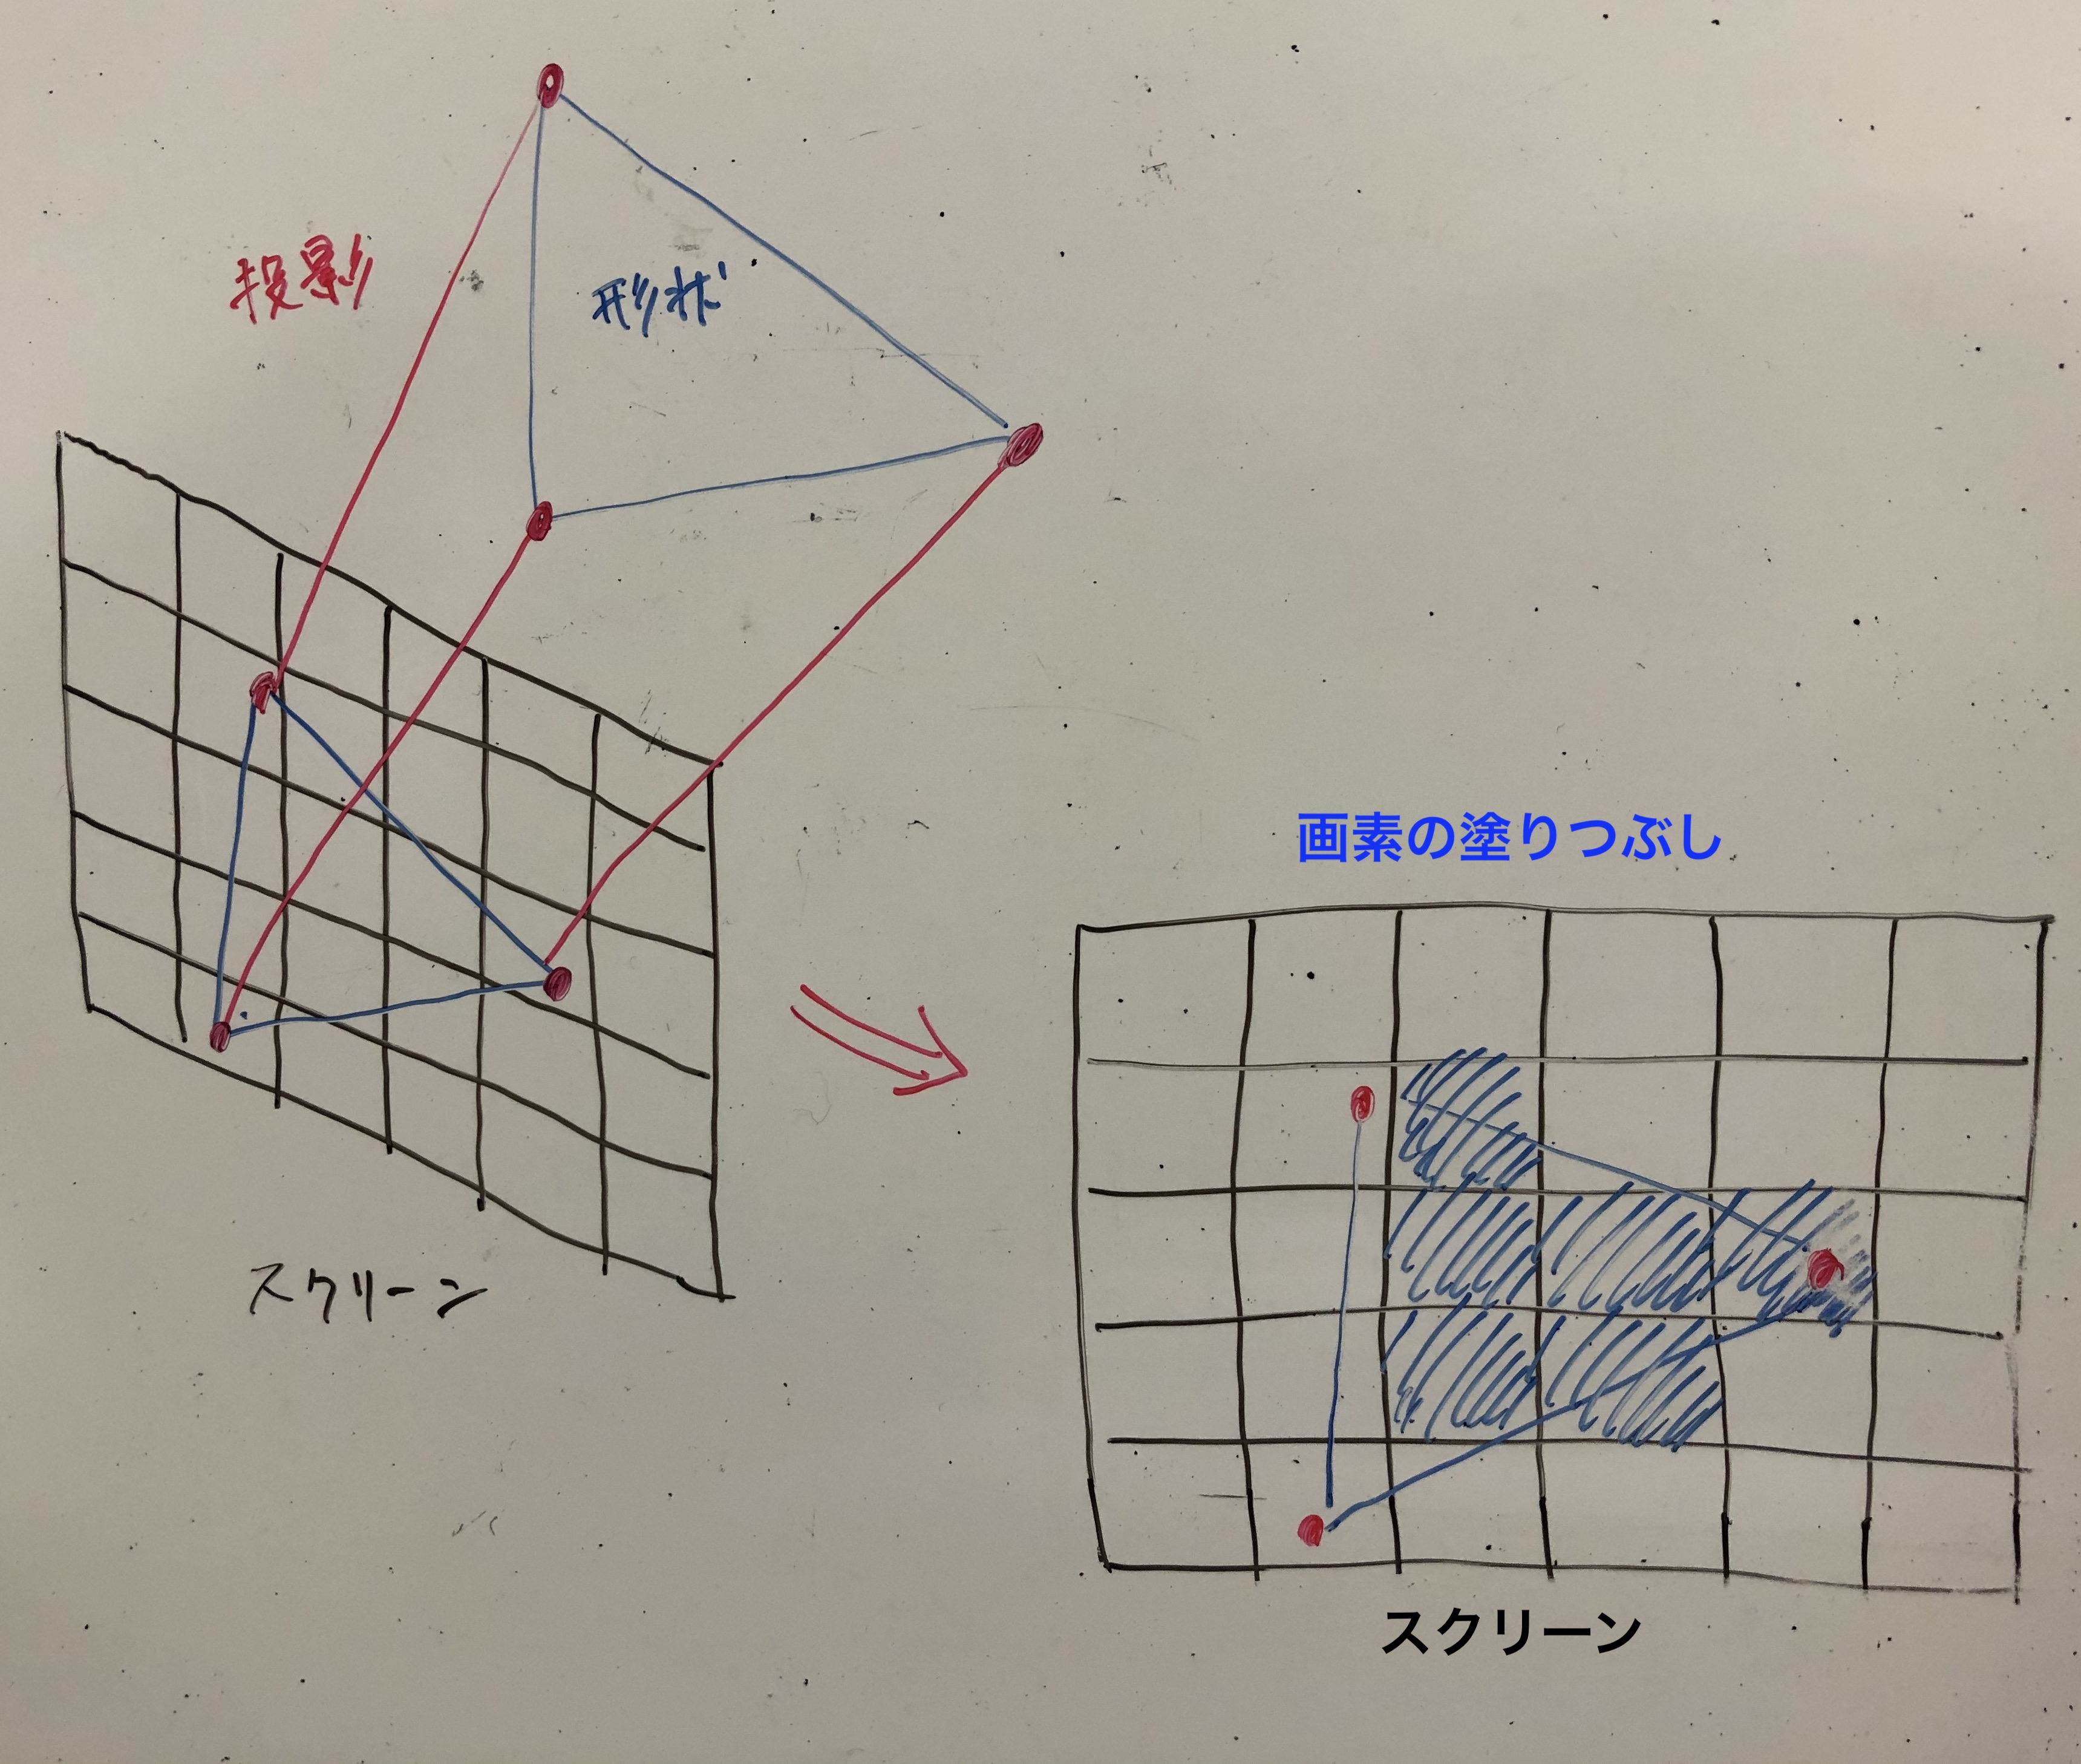 投影
形状
スクリーン
画素の塗りつぶし
スクリーン